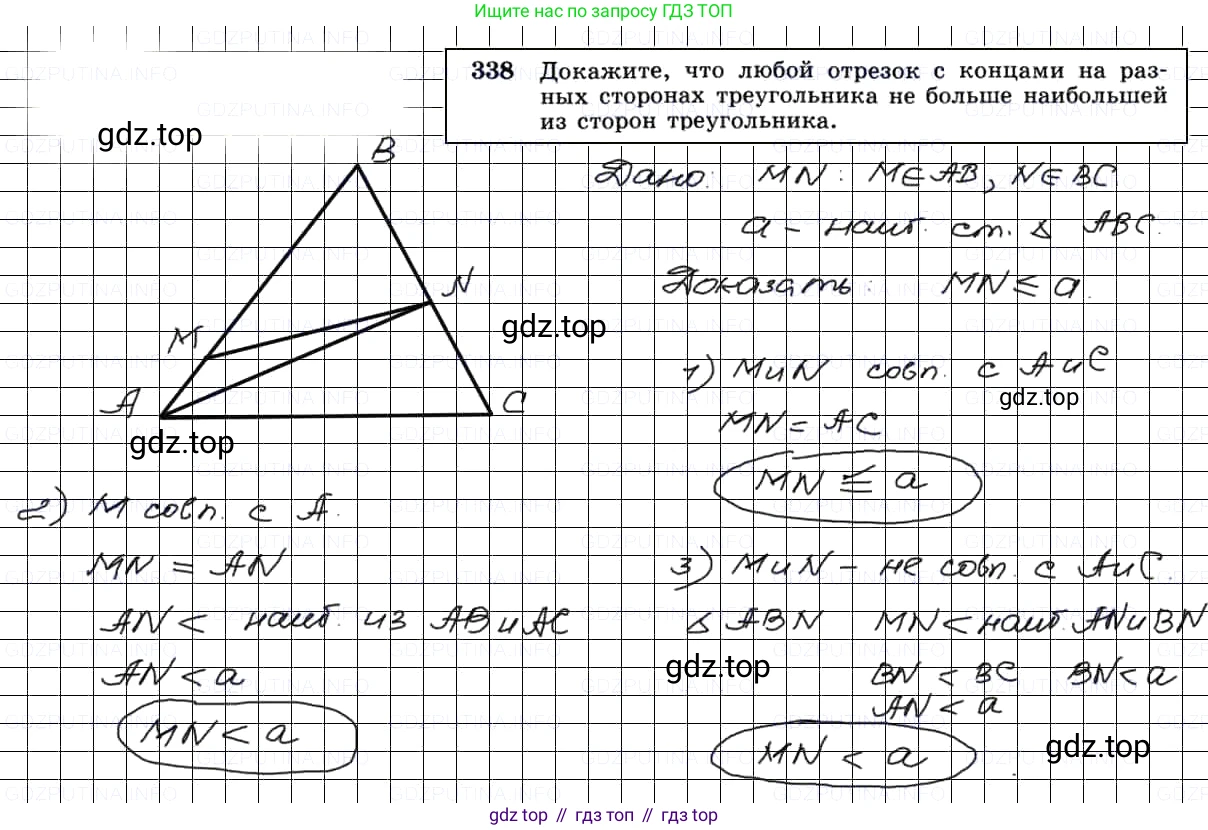 Ищите нас по запросу ГДЗ ТОП
338 Докажите, что любой отрезок с концами на раз-
ных сторонах треугольника не больше наибольшей
из сторон треугольника.
gdz.top
B
N
M
A
C
gdz.top
gdz.top
Дано: MN : M∈AB, N∈BC
a – наиб. ст. Δ ABC.
Доказать: MN ≤ a.
1) M и N совп. с A и C
gdz.top
MN = AC
MN ≤ a
2) M совп. с A.
MN = AN
AN < наиб. из AB и AC
AN < a
MN < a
3) M и N – не совп. с A и C.
Δ ABN MN < наиб. AN и BN
gdz.top
BN < BC BN < a
AN < a
MN < a
gdz.top
gdz top // гдз топ // гдз top
GDZPUTINA.INFO